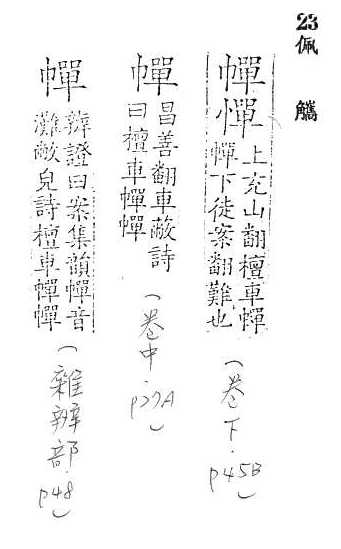 23 佩觿
幝憚 上充山翻檀車幝
幝下徒案翻難也
(卷下．p45B)
幝 昌善翻車敝詩
曰檀車幝幝
(卷中．p27A)
幝 辨證曰案集韻幝音
灘敝皃詩檀車幝幝
(雜辨部．p48)